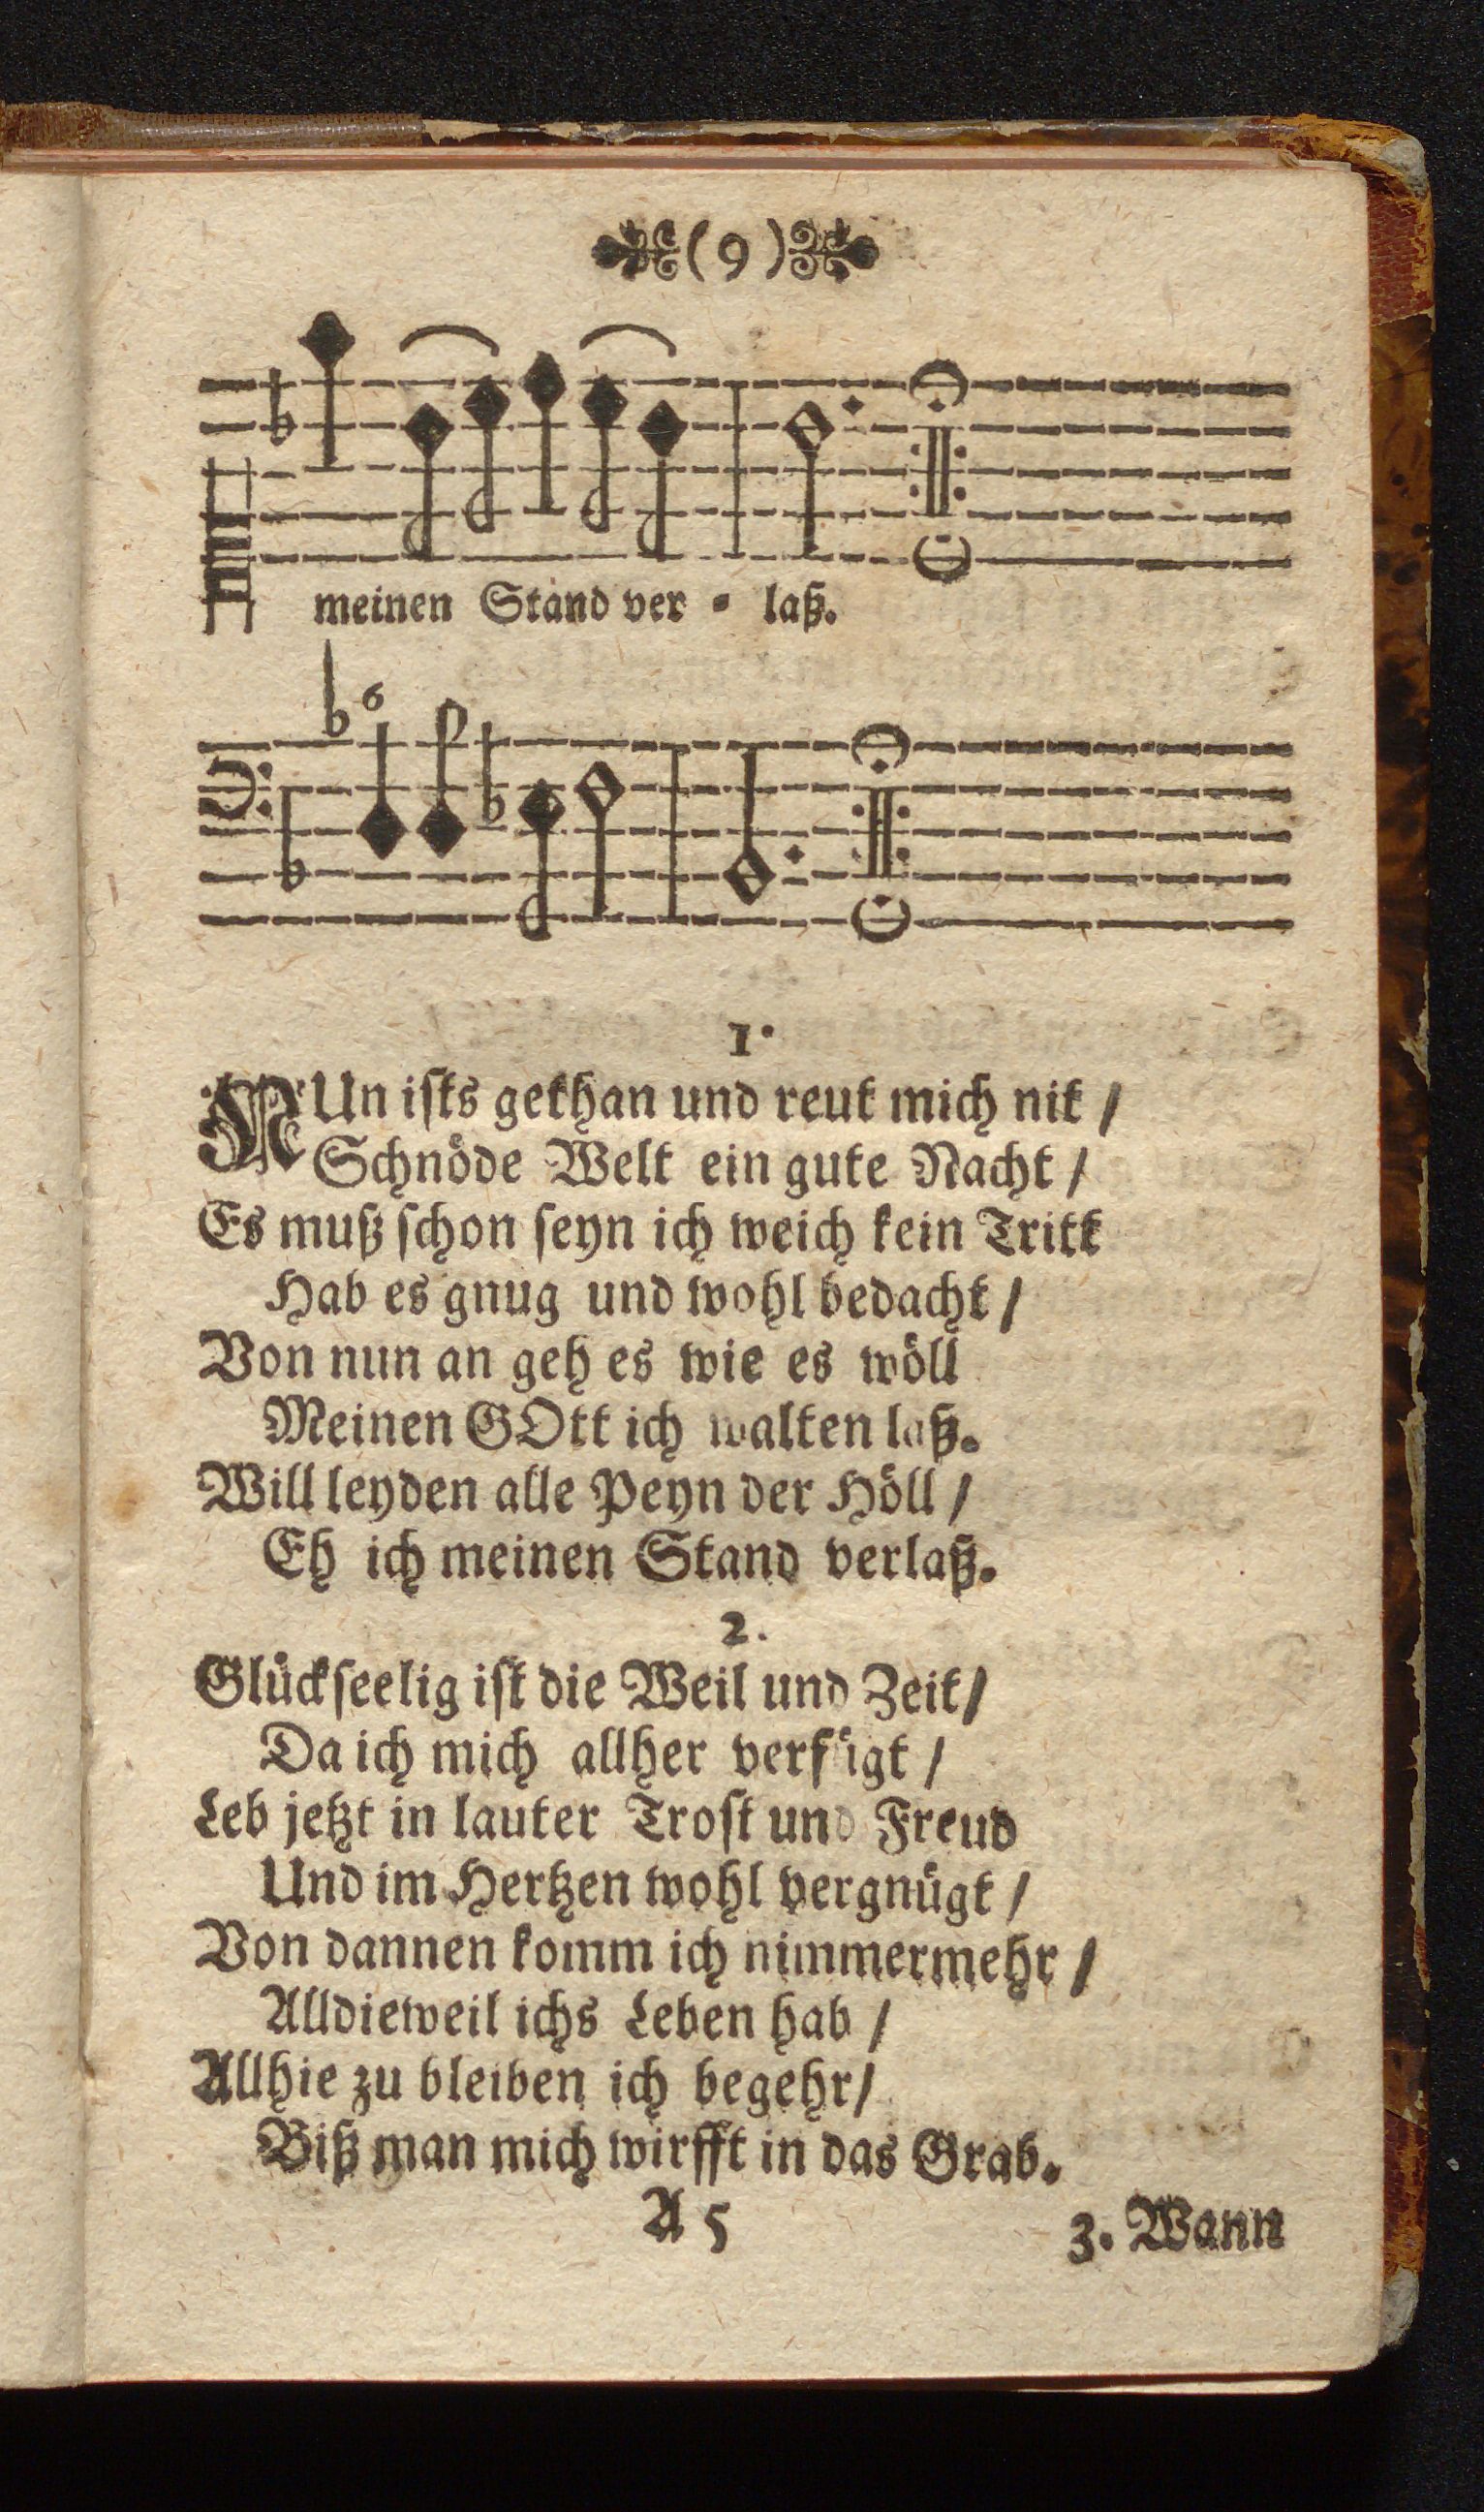 (9)
meinen Stand ver = laß.
6
1.
NUn ists gethan und reut mich nit /
Schnöde Welt ein gute Nacht /
Es muß schon seyn ich weich kein Tritt
Hab es gnug und wohl bedacht /
Von nun an geh es wie es wöll
Meinen GOtt ich walten laß.
Will leyden alle Peyn der Höll /
Eh ich meinen Stand verlaß.
2.
Glückseelig ist die Weil und Zeit /
Da ich mich allher verfügt /
Leb jetzt in lauter Trost und Freud
Und im Hertzen wohl vergnügt /
Von dannen komm ich nimmermehr /
Alldieweil ichs Leben hab /
Allhie zu bleiben ich begehr /
Biß man mich wirfft in das Grab.
A 5
3. Wann